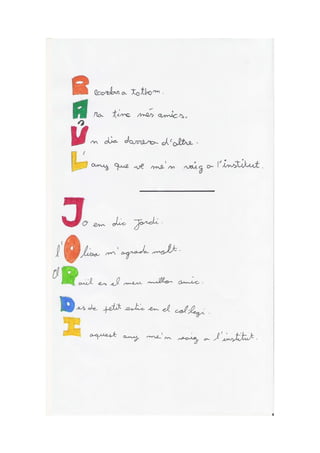 tothom.
Ara tinc més amics.
Un dia darrera d'altre.
L'any que ve me'n vaig a l'institut.
Jo em dic Jordi.
l'Oliva m'agrada molt.
Raül es el meu millor amic.
Desde petit estic en el col·legi.
I aquest any me'n vaig a l'institut.